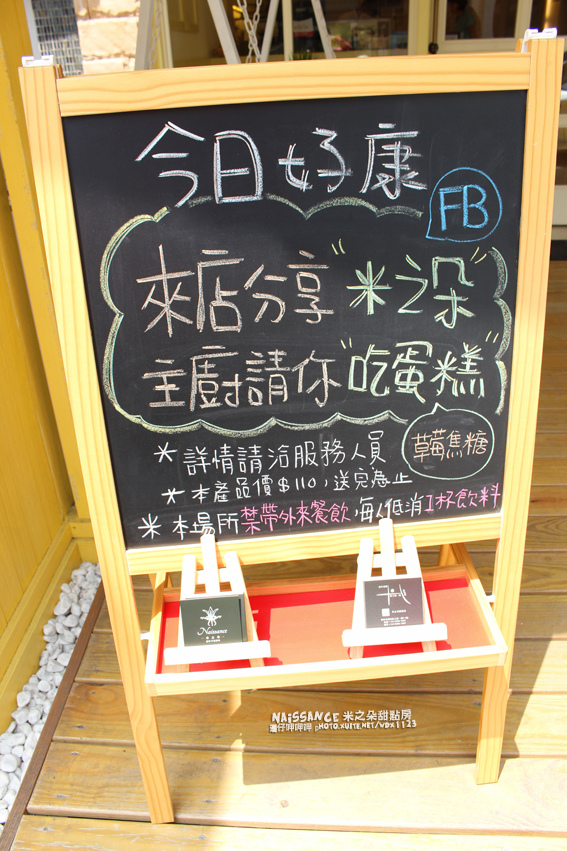 今日好康
FB
來店分享"米之朵"
主廚請你"吃蛋糕"
草莓焦糖
*詳情請洽服務人員
*本產品價$110,送完為止
*本場所禁帶外來餐飲,每人低消1杯飲料
Naissance
NAiSSANCE 米之朵甜點房
PHOTO.XUITE.NET/WDX1123